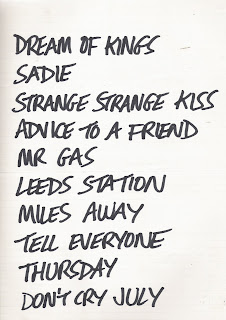 DREAM OF KINGS
SADIE
STRANGE STRANGE KISS
ADVICE TO A FRIEND
MR GAS
LEEDS STATION
MILES AWAY
TELL EVERYONE
THURSDAY
DON'T CRY JULY